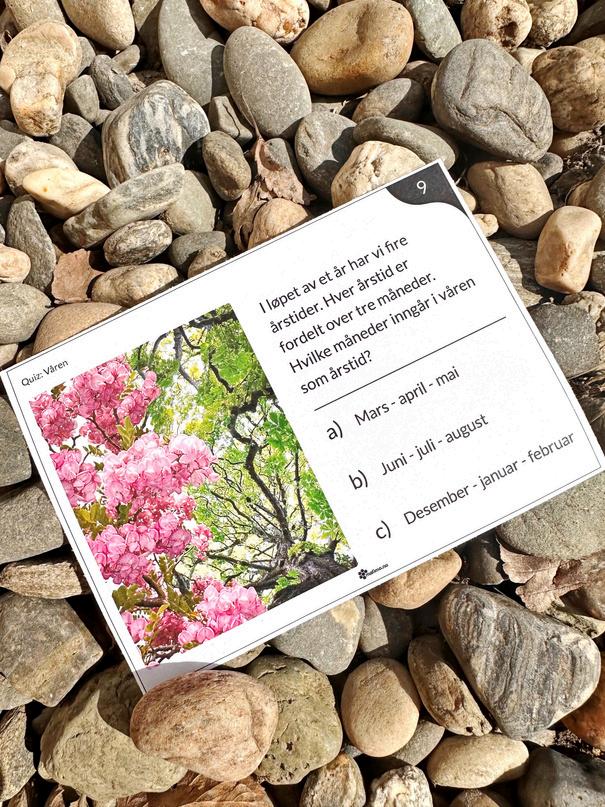 9
Quiz: Våren
I løpet av et år har vi fire
årstider. Hver årstid er
fordelt over tre måneder.
Hvilke måneder inngår i våren
som årstid?
a) Mars - april - mai
b) Juni - juli - august
c) Desember - januar - februar